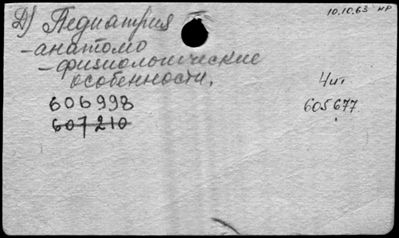 Д) Педиатрия
10.10.63 нр
-анатомо
-физиологические
особенности.
4 шт
606998
605677.
607210